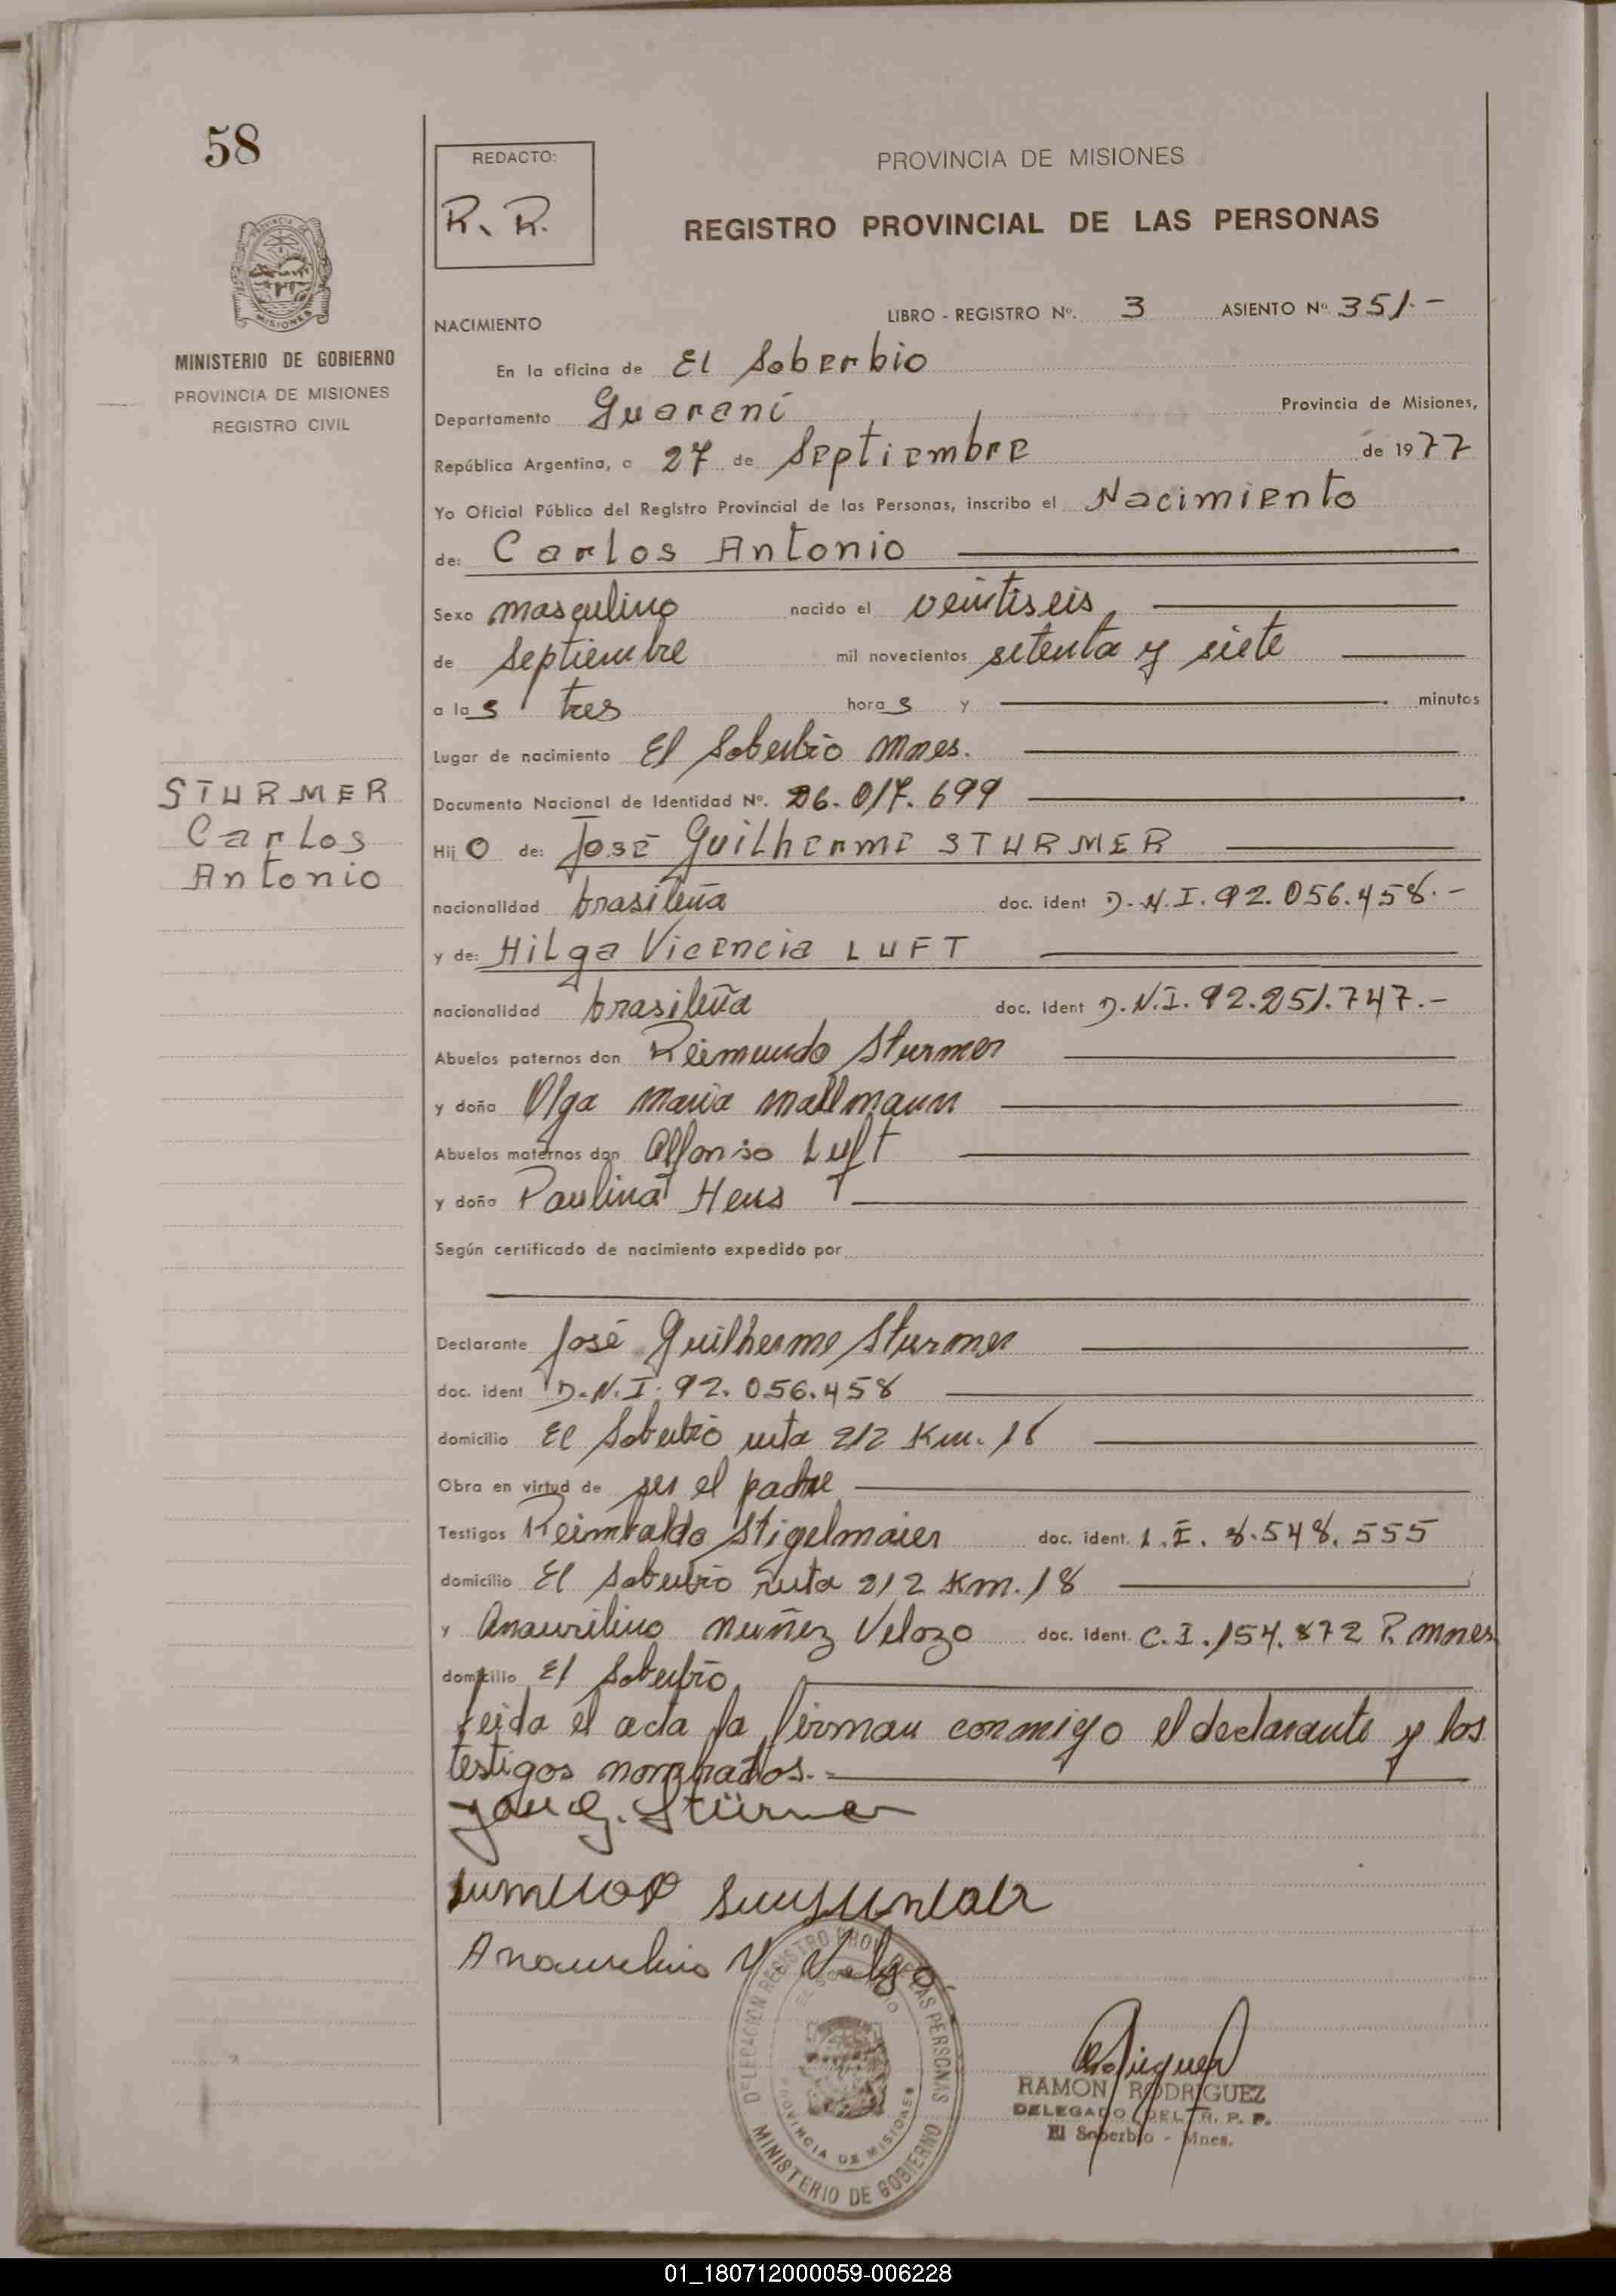 58
REDACTO:
R. R.
PROVINCIA DE MISIONES
REGISTRO PROVINCIAL DE LAS PERSONAS
MISIONES
MINISTERIO DE GOBIERNO
PROVINCIA DE MISIONES
REGISTRO CIVIL
NACIMIENTO
LIBRO - REGISTRO Nº. 3 ASIENTO Nº 351.-
En la oficina de El Soberbio
Departamento Guaraní Provincia de Misiones,
República Argentina, a 27 de Septiembre de 1977
Yo Oficial Público del Registro Provincial de las Personas, inscribo el Nacimiento
de: Carlos Antonio
Sexo masculino nacido el veintiseis
de septiembre mil novecientos setenta y siete
a las tres horas y minutos
Lugar de nacimiento El Soberbio Mnes.
STURMER
Carlos
Antonio
Documento Nacional de Identidad Nº. 26.017.699
Hijo de: José Guilherme STURMER
nacionalidad brasileña doc. ident D.N.I. 92.056.458.-
y de: Hilga Vicencia LUFT
nacionalidad brasileña doc. ident D.N.I. 92.251.747.-
Abuelos paternos don Reimundo Sturmer
y doña Olga Maria Mallmann
Abuelos maternos don Alfonso Luft
y doña Paulina Hens
Según certificado de nacimiento expedido por
Declarante José Guilherme Sturmer
doc. ident D.N.I. 92.056.458
domicilio El Soberbio ruta 212 Km. 18
Obra en virtud de ser el padre
Testigos Reimbaldo Stigelmaier doc. ident. L.E. 8.548.555
domicilio El Soberbio ruta 212 Km. 18
y Anaurilino Nuñez Velozo doc. ident. C.I. 154.872 P. Mnes
domicilio El Soberbio
Leida el acta la firman conmigo el declarante y los
testigos nombrados.-
José G. Stürmer
Anaurelino N. Velozo
DELEGACION REGISTRO PROV. DE LAS PERSONAS
EL SOBERBIO
PROVINCIA DE MISIONES
MINISTERIO DE GOBIERNO
RAMON RODRIGUEZ
DELEGADO DEL R. P. P.
El Soberbio - Mnes.
01_180712000059-006228